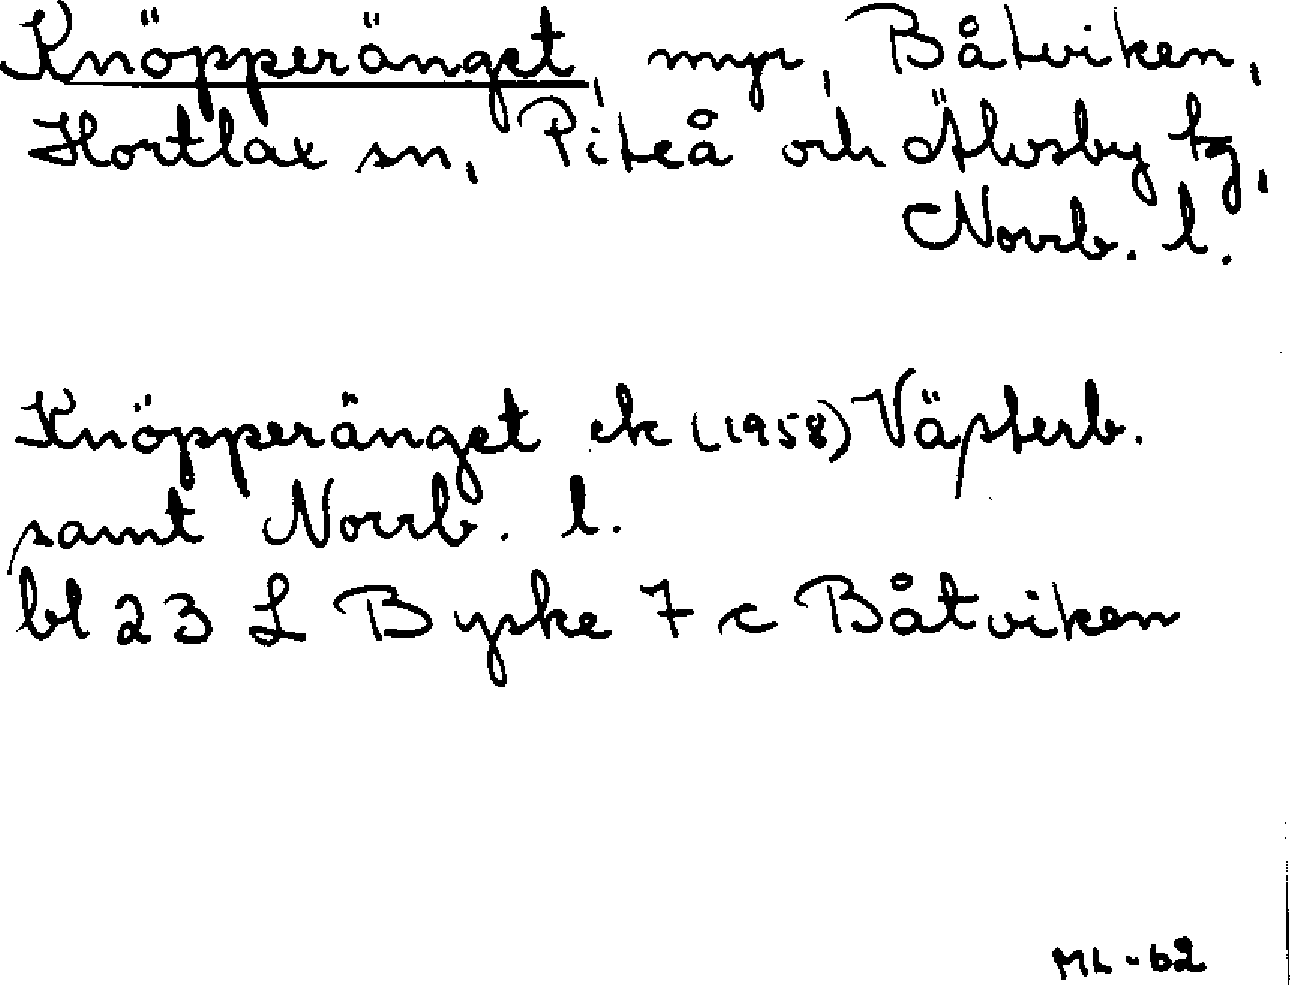 Knöpperänget, myr, Båtviken,
Hortlax sn, Piteå och Älvsby tg,
Norrb. l.
Knöpperänget ek (1958) Västerb.
samt Norrb. l.
bl 23 L Byske 7 c Båtviken
ML - 62